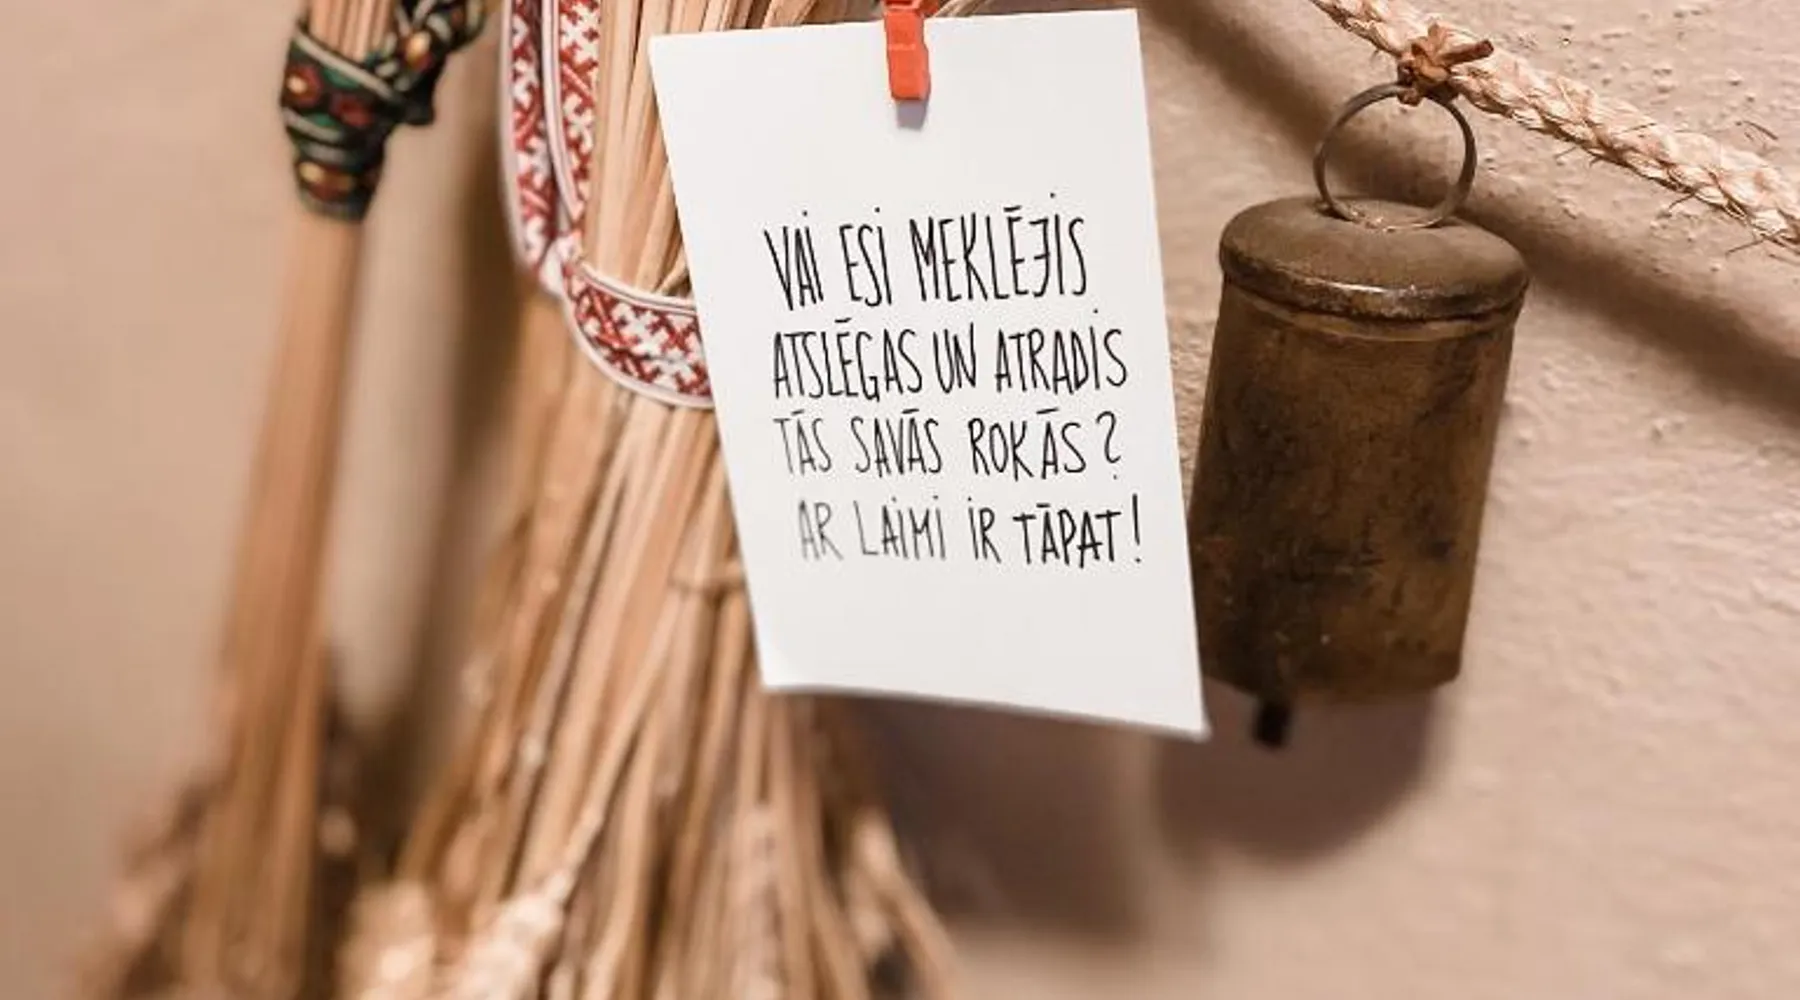 VAI ESI MEKLĒJIS
ATSLĒGAS UN ATRADIS
TĀS SAVĀS ROKĀS?
AR LAIMI IR TĀPAT!